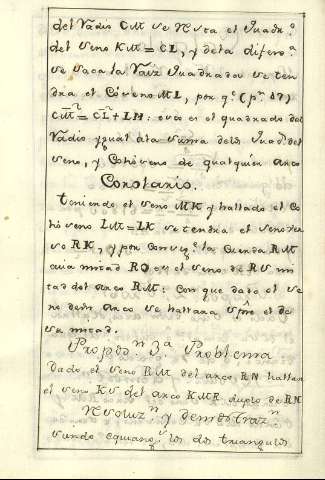 del Radio CM se Resta el Quadr.º
del seno KM = CL, y dela difer.ª
se saca la Raiz Quadrada se ten
dra el Coseno ML, por q.e (p.n 47)
CM² = CL² + LM² : esto es el quadrado del
Radio ygual ala suma delos Quad.s del
seno, y Cohseno de qualquier arco
Corolario.
teniendo el seno MK y hallado el Co
hseno LM = LK se tendra el senover
so RK, y por conseq.a la Cuerda RM
cuia mitad RO es el seno de RS mi
tad del arco RM : Con que dado el se
no deun arco se hallara el de
su mitad.
Propos.n 3.a Problema
dado el seno RM del arco RN hallar
el seno KS del arco KMR duplo de RN
Resoluz.n y demostraz.n
siendo equiang.s los dos triangulos